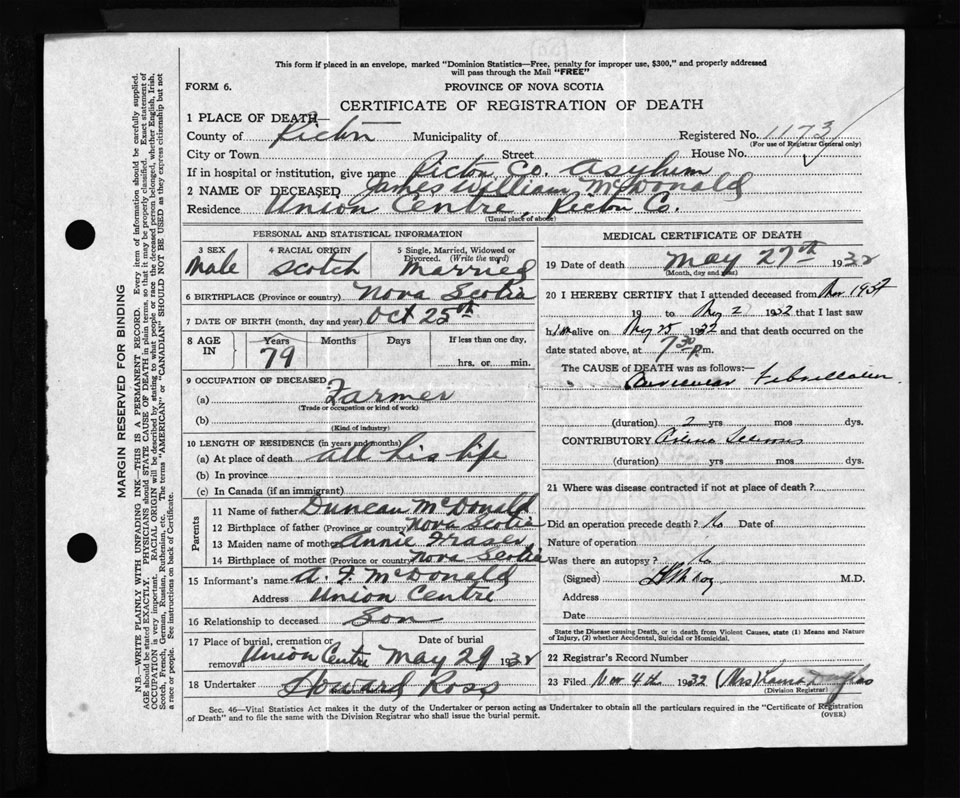 This form if placed in an envelope, marked "Dominion Statistics—Free, penalty for improper use, $300," and properly addressed
will pass through the Mail "FREE"
FORM 6.
PROVINCE OF NOVA SCOTIA
CERTIFICATE OF REGISTRATION OF DEATH
1 PLACE OF DEATH—
County of Pictou Municipality of Registered No. 1173
(For use of Registrar General only)
City or Town Street House No.
If in hospital or institution, give name Pictou Co. Asylum
2 NAME OF DECEASED James William McDonald
Residence Union Centre, Pictou Co.
(Usual place of abode)
PERSONAL AND STATISTICAL INFORMATION
3 SEX 4 RACIAL ORIGIN 5 Single, Married, Widowed or
Divorced. (Write the word)
Male Scotch Married
6 BIRTHPLACE (Province or country) Nova Scotia
7 DATE OF BIRTH (month, day and year) Oct 25th
8 AGE IN Years Months Days If less than one day,
79 hrs. or min.
9 OCCUPATION OF DECEASED
(a) Farmer
(Trade or occupation or kind of work)
(b)
(Kind of industry)
10 LENGTH OF RESIDENCE (in years and months)
(a) At place of death all his life
(b) In province
(c) In Canada (if an immigrant)
Parents
11 Name of father Duncan McDonald
12 Birthplace of father (Province or country) Nova Scotia
13 Maiden name of mother Annie Fraser
14 Birthplace of mother (Province or country) Nova Scotia
15 Informant's name A. F. McDonald
Address Union Centre
16 Relationship to deceased Son
17 Place of burial, cremation or Date of burial
removal Union Centre May 29 1932
18 Undertaker Howard Ross
MEDICAL CERTIFICATE OF DEATH
19 Date of death May 27th 1932
(Month, day and year)
20 I HEREBY CERTIFY that I attended deceased from Nov
19 to May 2 1932 that I last saw
him alive on May 25 1932 and that death occurred on the
date stated above, at 7.30 p.m.
The CAUSE of DEATH was as follows:—
Auricular Fibrillation
(duration) 2 yrs mos dys.
CONTRIBUTORY
(duration) yrs mos dys.
21 Where was disease contracted if not at place of death?
Did an operation precede death? No Date of
Nature of operation
Was there an autopsy? No
(Signed) M.D.
Address
Date
State the Disease causing Death, or in death from Violent Causes, state (1) Means and Nature
of Injury, (2) whether Accidental, Suicidal or Homicidal.
22 Registrar's Record Number
23 Filed Nov 4th 1932 Mrs Douglas
(Division Registrar)
Sec. 46—Vital Statistics Act makes it the duty of the Undertaker or person acting as Undertaker to obtain all the particulars required in the "Certificate of Registration
of Death" and to file the same with the Division Registrar who shall issue the burial permit.
(OVER)
MARGIN RESERVED FOR BINDING
N.B.—WRITE PLAINLY WITH UNFADING INK—THIS IS A PERMANENT RECORD. Every item of information should be carefully supplied.
AGE should be stated EXACTLY. PHYSICIANS should STATE CAUSE OF DEATH in plain terms, so that it may be properly classified. Exact statement of
OCCUPATION is very important. RACIAL ORIGIN will be described by stating to what people or race the deceased person belonged, whether English, Irish,
Scotch, French, German, Russian, Ruthenian, etc. The terms "AMERICAN" or "CANADIAN" SHOULD NOT BE USED as they express citizenship but not
a race or people. See instructions on back of Certificate.